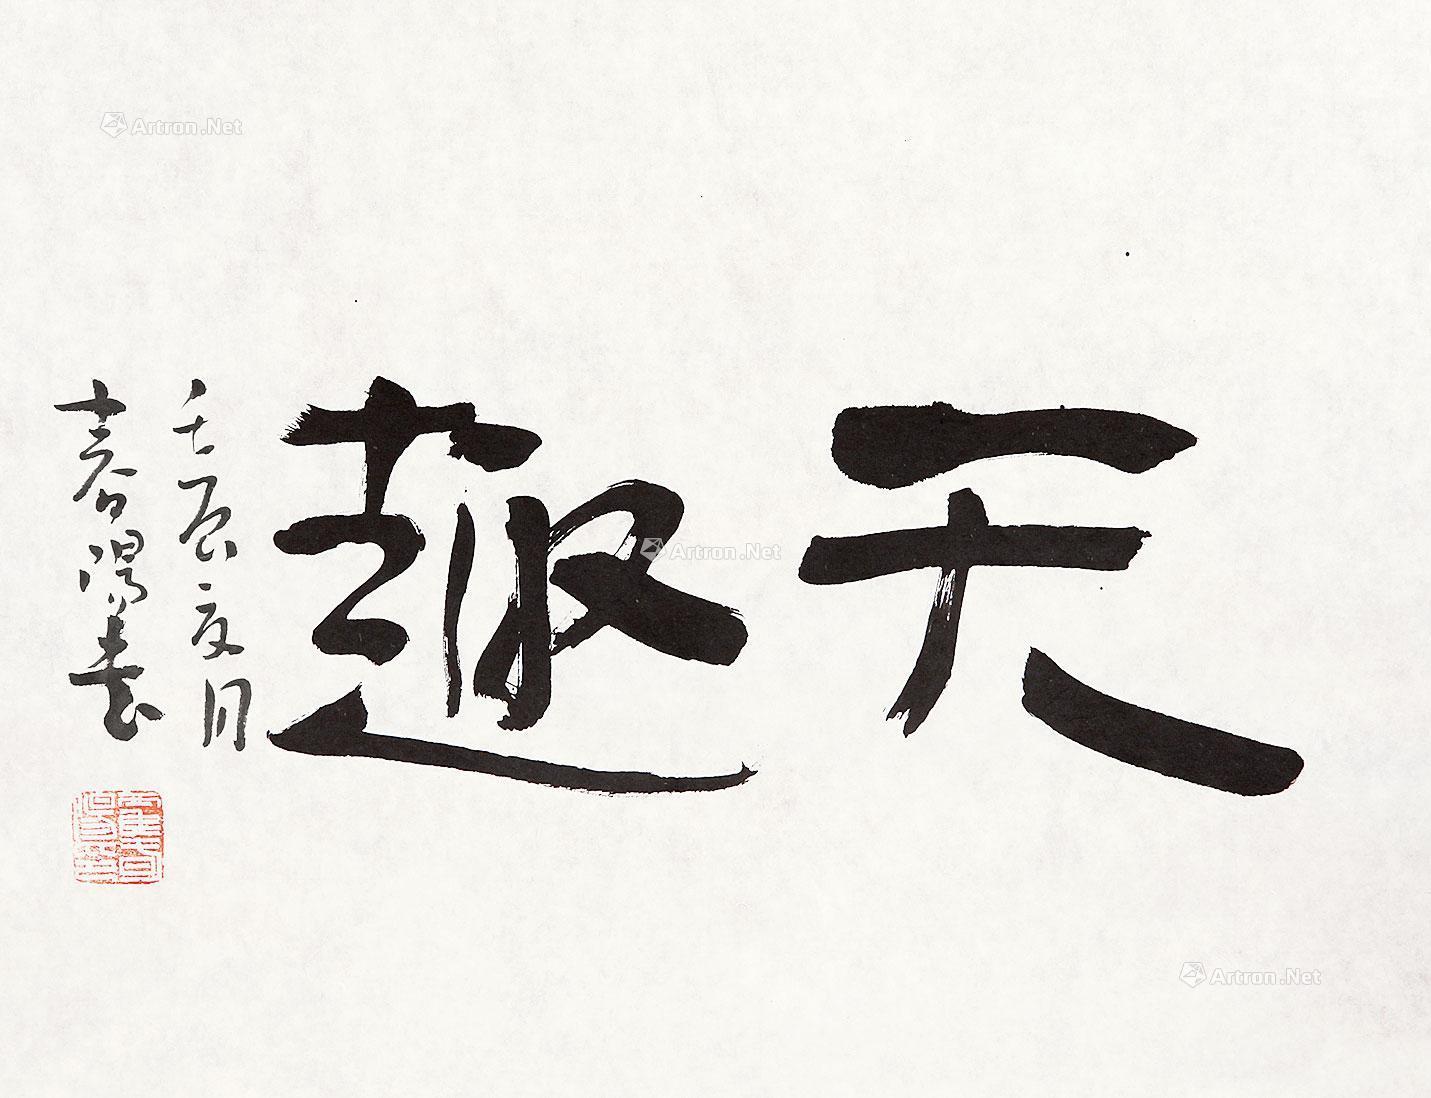 天趣
壬辰夏月
春陽書
Artron.Net
Artron.Net
Artron.Net